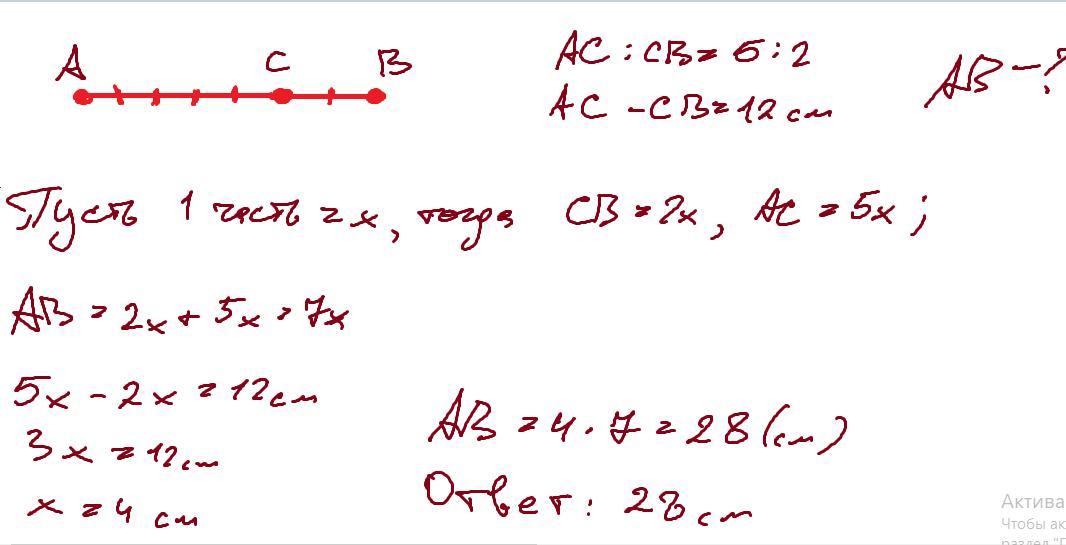 A C B
AC : CB = 5 : 2
AC - CB = 12 см
AB - ?
Пусть 1 часть = x, тогда CB = 2x, AC = 5x;
AB = 2x + 5x = 7x
5x - 2x = 12 см
3x = 12 см
x = 4 см
AB = 4 · 7 = 28 (см)
Ответ: 28 см
Актива
Чтобы ак
раздел "П